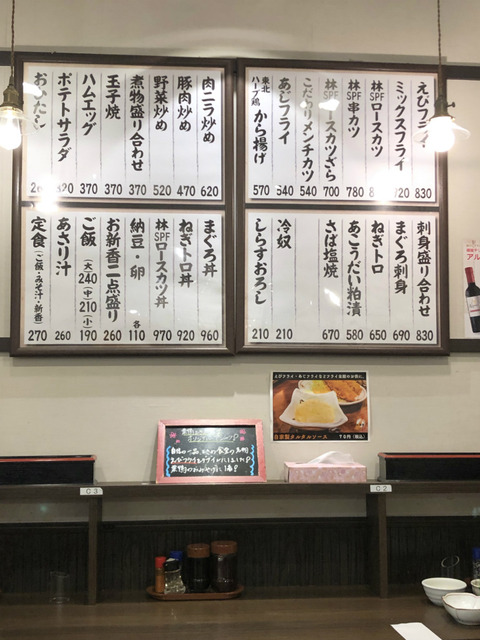 えびフライ 830
ミックスフライ
林SPFロースカツ
林SPF串カツ 780
林SPFロースカツざら 700
こだわりメンチカツ 540
あじフライ 540
東北ハーブ鶏 から揚げ 570
肉ニラ炒め 620
豚肉炒め 470
野菜炒め 520
煮物盛り合わせ 370
玉子焼 370
ハムエッグ 370
ポテトサラダ
おひたし
刺身盛り合わせ 830
まぐろ刺身 690
ねぎトロ 650
あこうだい粕漬 580
さば塩焼 670
冷奴 210
しらすおろし 210
まぐろ丼 960
ねぎトロ丼 920
林SPFロースカツ丼 970
納豆・卵 各110
お新香二点盛り 260
ご飯 (大)240 (中)210 (小)190
あさり汁 260
定食(ご飯・みそ汁・新香) 270
えびフライ・あじフライなどフライ各種のお供に。
自家製タルタルソース 70円(税込)
C3
C2